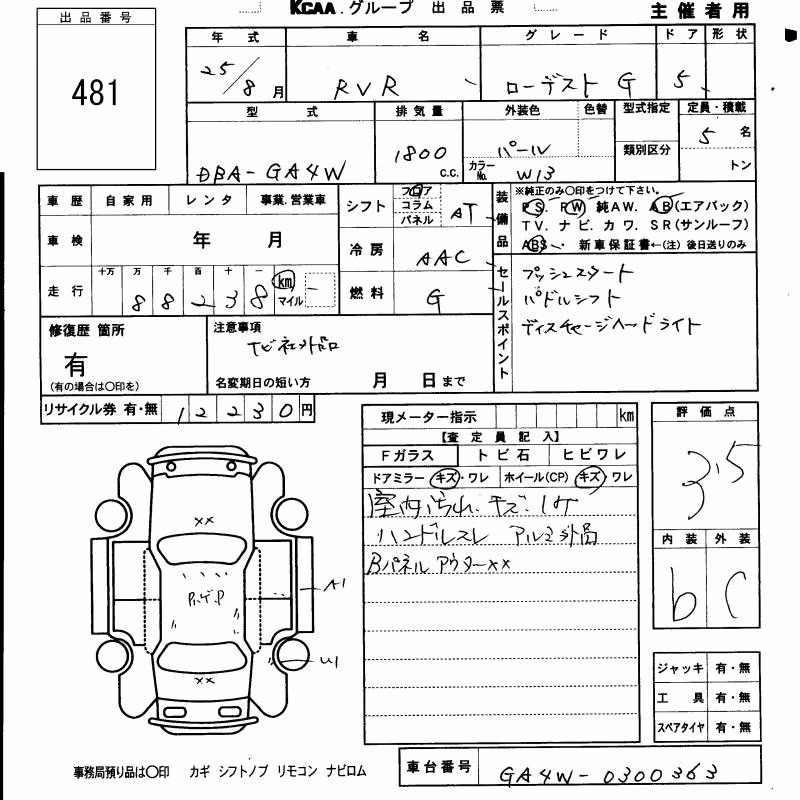 KCAA.グループ 出品票
主催者用
出品番号
481
年式 車名 グレード ドア 形状
25/8月 RVR ローデスト G 5
型式 排気量 外装色 色替 型式指定 定員・積載
DBA-GA4W 1800 c.c. パール 5名
カラーNo. W13 類別区分 トン
車歴 自家用 レンタ 事業.営業車
シフト フロア コラム パネル AT
装備品 ※純正のみ〇印をつけて下さい。
PS. PW 純AW. AB(エアバック)
TV. ナビ. カワ. SR(サンルーフ)
ABS. 新車保証書←(注)後日送りのみ
車検 年 月
冷房 AAC
走行 十万 万 千 百 十 一
88238 km マイル
燃料 G
セールスポイント
プッシュスタート
パドルシフト
ディスチャージヘッドライト
修復歴 箇所
有
(有の場合は〇印を)
注意事項
名変期日の短い方 月 日まで
リサイクル券 有・無 12230円
現メーター指示 km
【査定員記入】
Fガラス トビ石 ヒビワレ
ドアミラー キズ・ワレ ホイール(CP) キズ・ワレ
室内汚れ、キズ、
ハンドルスレ アルミ
Bパネルアウター××
評価点
3.5
内装 外装
b C
××
A1
U1
××
ジャッキ 有・無
工具 有・無
スペアタイヤ 有・無
事務局預り品は〇印 カギ シフトノブ リモコン ナビロム
車台番号 GA4W-0300363